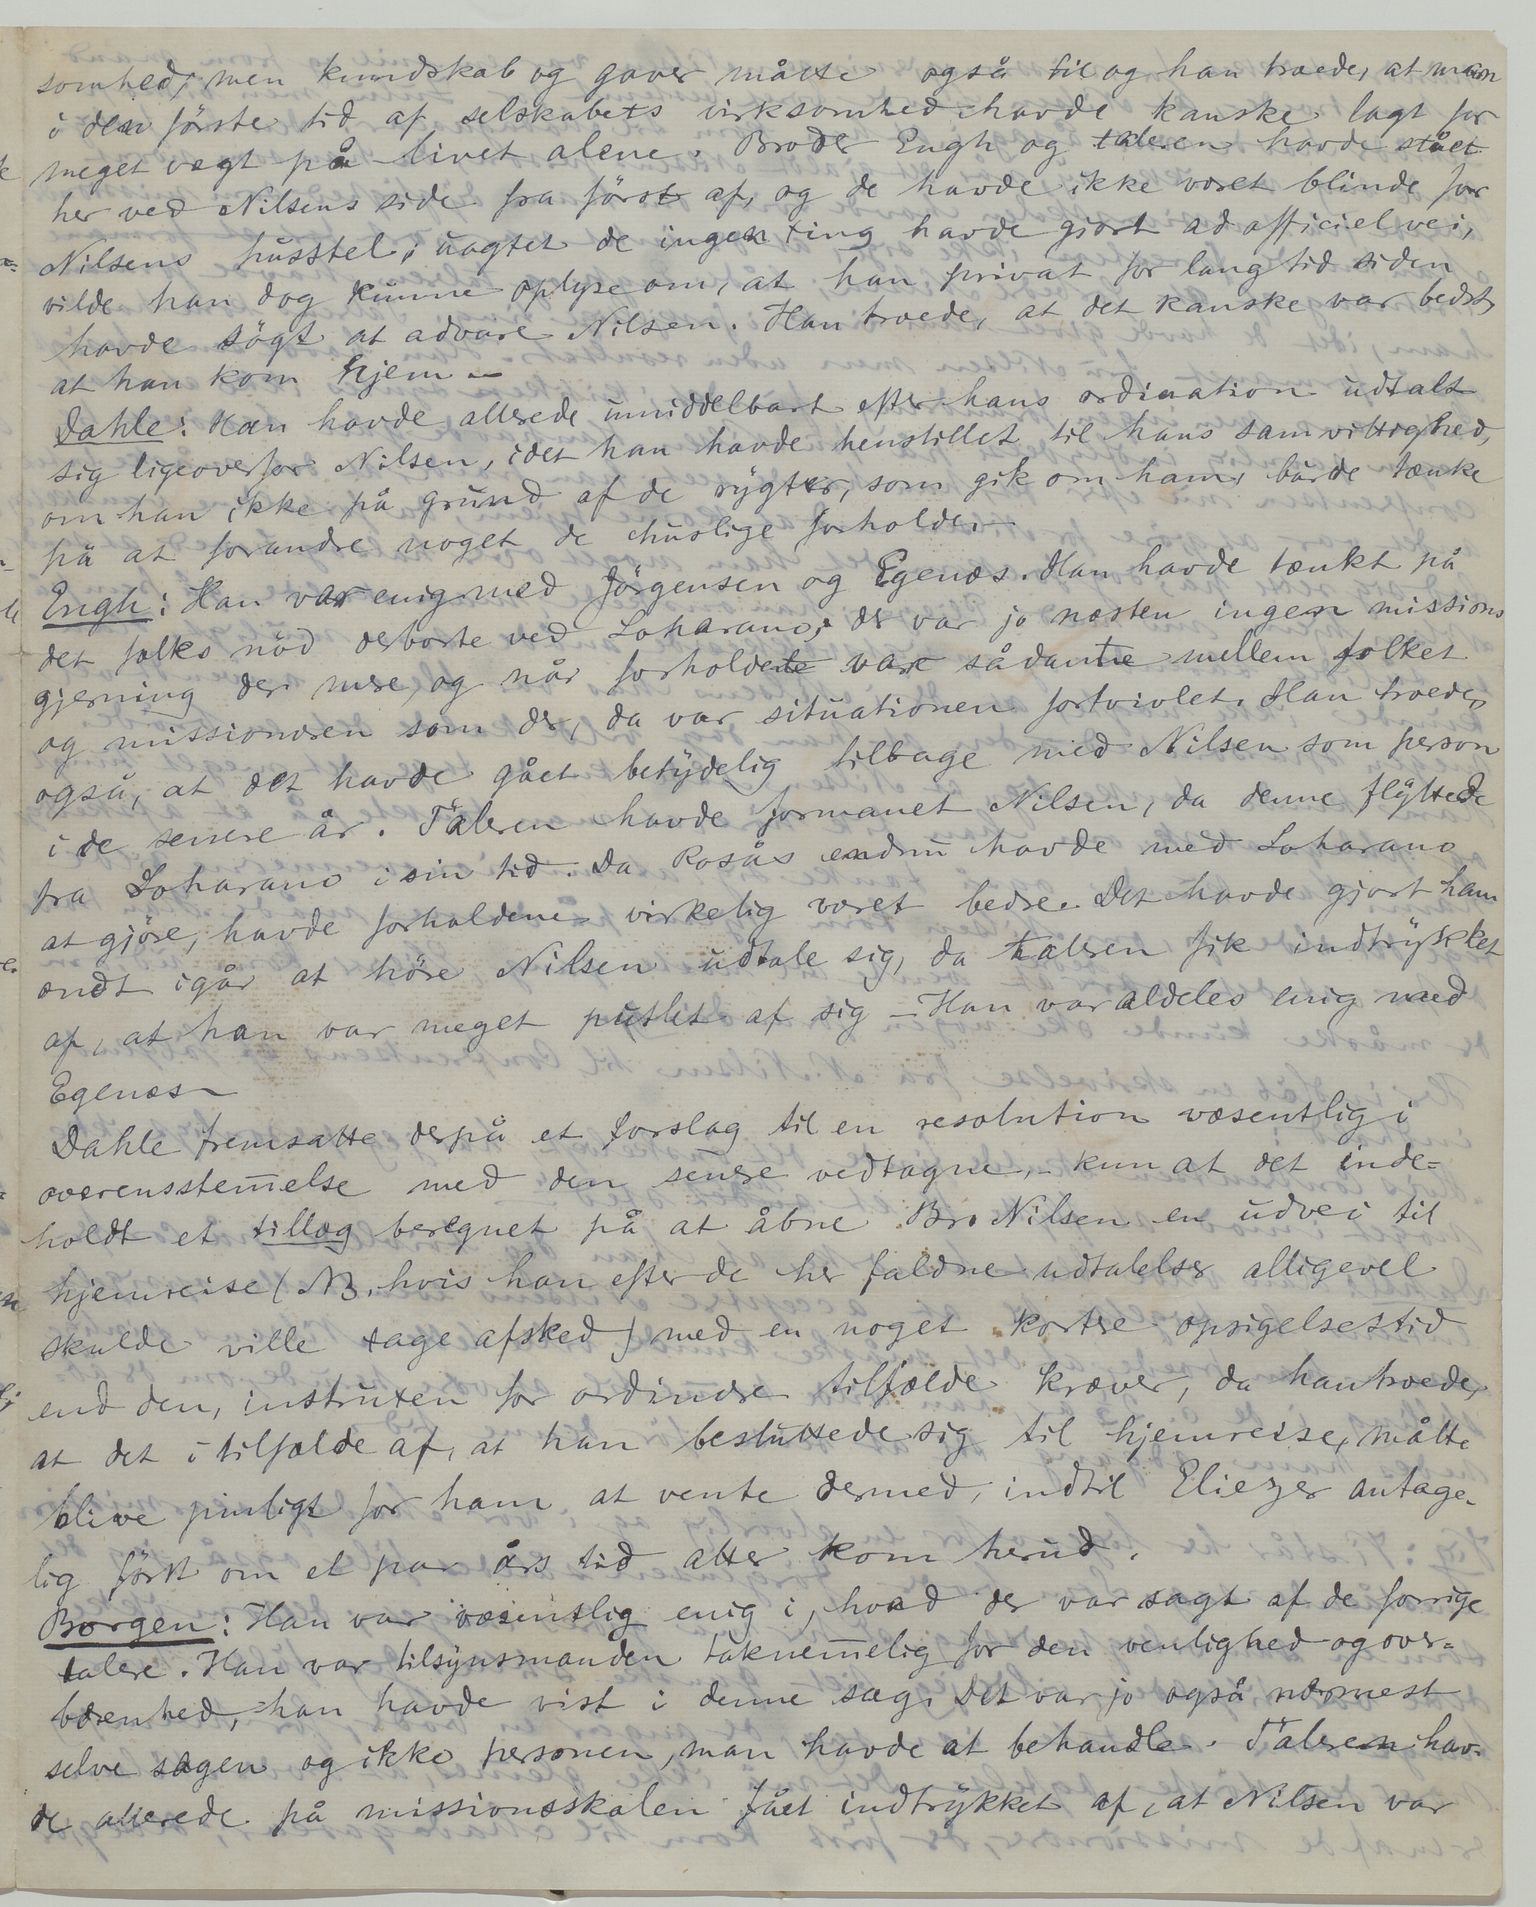 somhed, men kundskab og gaver måtte også til og han troede, at man
i den förste tid af selskabets virksomhed havde kanske lagt for
meget vægt på livet alene. Broder Engh og taleren havde stået
her ved Nilsens side fra först af, og de havde ikke været blinde for
Nilsens husstel; uagtet de ingen ting havde gjort ad officiel vei,
vilde han dog kunne oplyse om, at han privat for lang tid siden
havde sögt at advare Nilsen. Han troede, at det kanske var bedst,
at han kom hjem –
Dahle: Han havde allerede umiddelbart efter hans ordination udtalt
sig ligeoverfor Nilsen, idet han havde henstillet til hans samvittighed,
om han ikke på grund af de rygter, som gik om ham, burde tænke
på at forandre noget de huslige forholde. –
Engh: Han var enig med Jörgensen og Egenæs. Han havde tænkt på
det folks nöd derborte ved Loharano; der var jo næsten ingen missions
gjerning der mere, og når forholdene vare sådanne mellem folket
og missionæren som der, da var situationen fortvivlet. Han troede
også, at det havde gået betydelig tilbage med Nilsen som person
i de senere år. Taleren havde formanet Nilsen, da denne flyttede
fra Loharano i sin tid. Da Rosås endnu havde med Loharano
at gjöre, havde forholdene virkelig været bedre. Det havde gjort ham
ondt igår at höre Nilsen udtale sig, da taleren fik indtrykket
af, at han var meget af sig – Han var aldeles enig med
Egenæs –
Dahle fremsatte derpå et forslag til en resolution væsentlig i
overensstem̄else med den senere vedtagne, – kun at det inde=
holdt et tillæg beregnet på at åbne Br. Nilsen en udvei til
hjemreise (NB. hvis han efter de her faldne udtalelser alligevel
skulde ville tage afsked) med en noget kortere opsigelsestid
end den, instruxen for ordinære tilfælde kræver, da han troede,
at det i tilfælde af, at han besluttede sig til hjemreise, måtte
blive pinligt for ham at vente dermed, indtil Eliezer antage-
lig först om et par års tid atter kom herud.
Borgen: Han var væsentlig enig i, hvad der var sagt af de forrige
talere. Han var tilsynsmanden taknem̄elig for den venlighed og over=
bærenhed, han havde vist i denne sag. Det var jo også nærmest
selve sagen og ikke personen, man havde at behandle. Taleren hav-
de allerede på missionsskolen fået indtrykket af, at Nilsen var